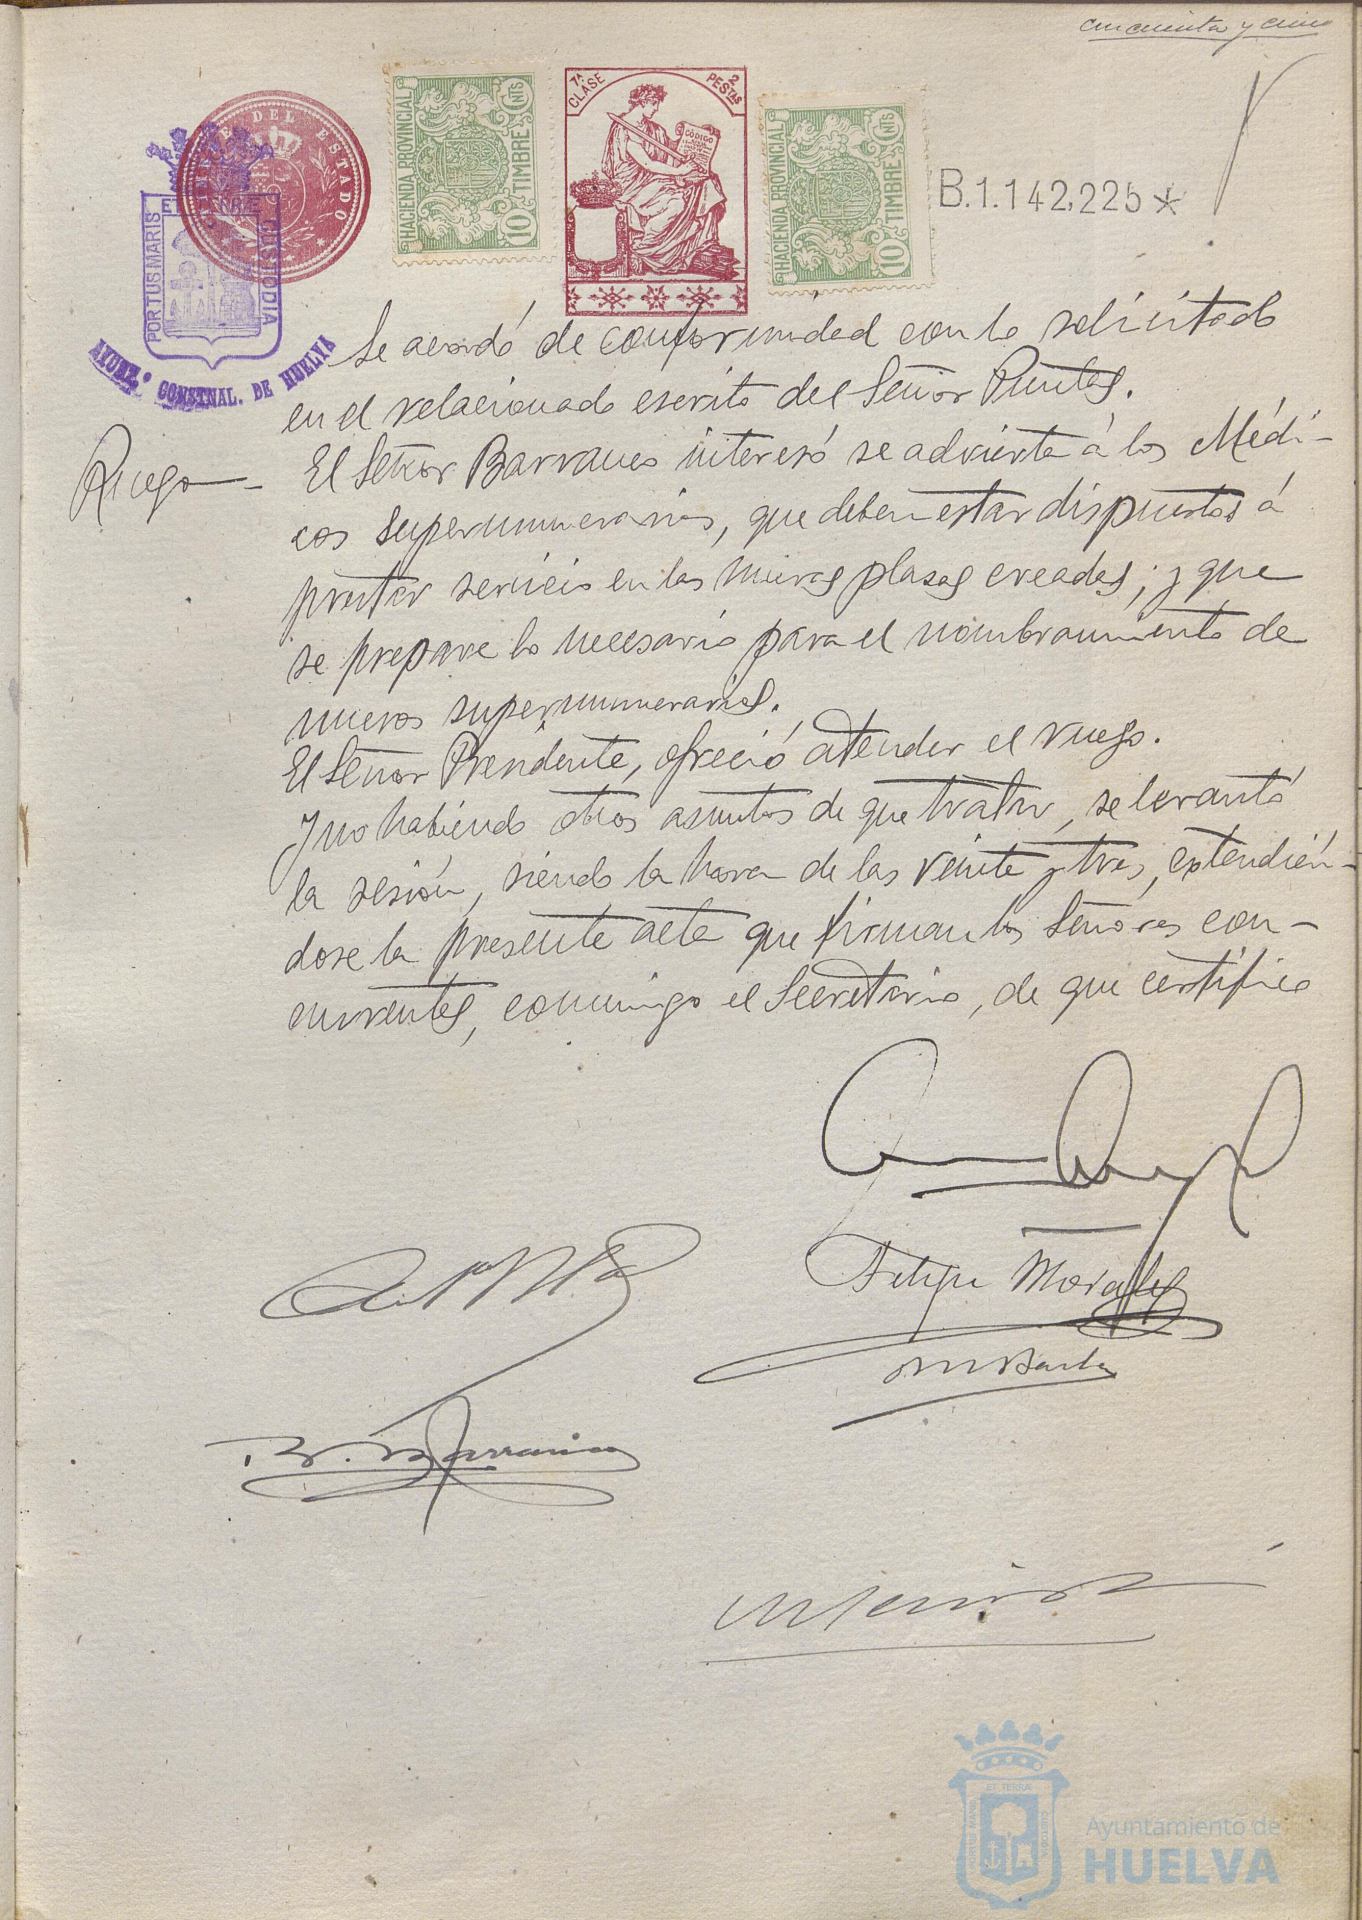 cincuenta y cinco
TIMBRE DEL ESTADO
PORTUS MARIS ET TERRÆ CUSTODIA
AYUNT.º CONSTNAL. DE HUELVA
HACIENDA PROVINCIAL
10 TIMBRE CNTS
7ª CLASE 2 PESTAS
CÓDIGO
HACIENDA PROVINCIAL
10 TIMBRE CNTS
B.1.142,225*
Se acordó de conformidad con lo solicitado
en el relacionado escrito del Señor Puntas.
Ruego El Señor Barranco interesó se advierta á los Médi-
cos supernumerarios, que deben estar dispuestos á
prestar servicio en las nuevas plasas creadas; y que
se prepare lo necesario para el nombramiento de
nuevos supernumerarios.
El Señor Presidente, ofreció atender el ruego.
Y no habiendo otros asuntos de que tratar, se levantó
la sesión, siendo la hora de las veinte y tres, extendién-
dose la presente acta que firman los Señores con-
currentes, conmigo el Secretario, de que certifico
Felipe Morales
Barranco
ET TERRÆ
PORTUS MARIS
CUSTODIA
Ayuntamiento de
HUELVA